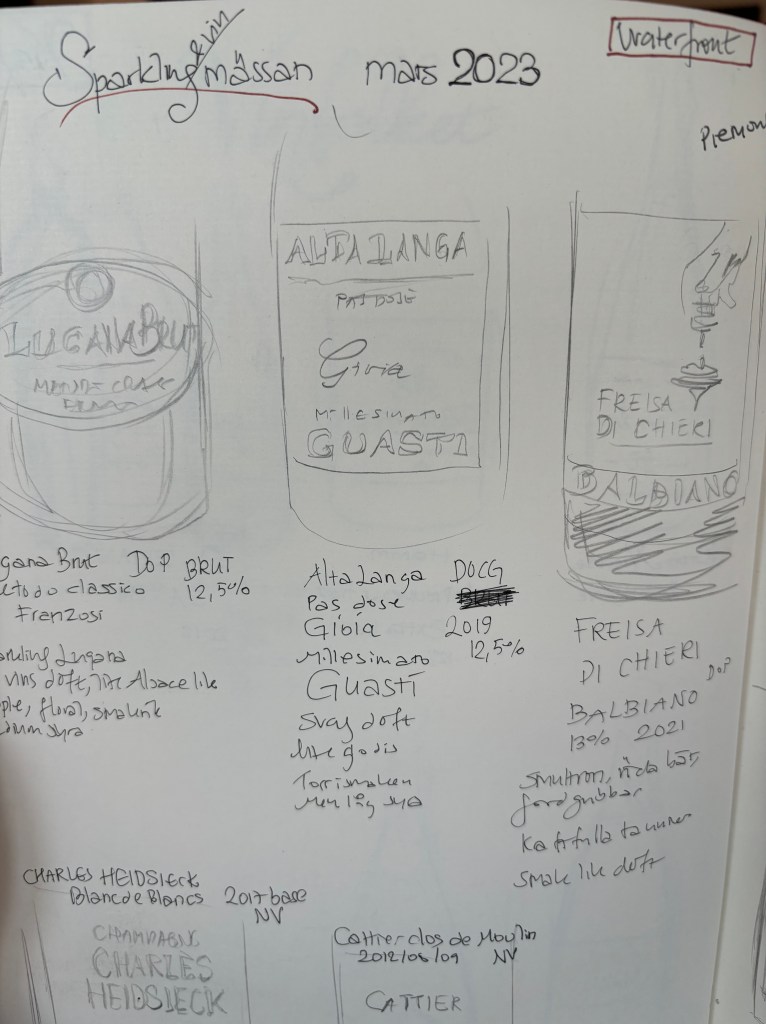 Sparkling & vin mässan mars 2023
Waterfront
Piemon
LUGANA BRUT
ALTA LANGA
PAS DOSÈ
MILLESIMATO
GUASTI
FREISA
DI CHIERI
BALBIANO
gana Brut DOP BRUT
etodo classico 12,5%
Franzosi
Lugana
vins doft, lite Alsace like
ple, floral, smakrik
syra
Alta Langa DOCG
Pas dose
Gibia 2019
Millesimato 12,5%
GUASTI
Svag doft
lite godis
Torr i smaken
Men låg syra
FREISA
DI CHIERI DOP
BALBIANO
13% 2021
smultron, röda bär,
jordgubbar
Kraftfulla tanniner
Smak lik doft
CHARLES HEIDSIECK
Blanc de Blancs 2017 base
NV
CHAMPAGNE
CHARLES
HEIDSIECK
Cattier clos de Moulin
2012/08/09 NV
CATTIER